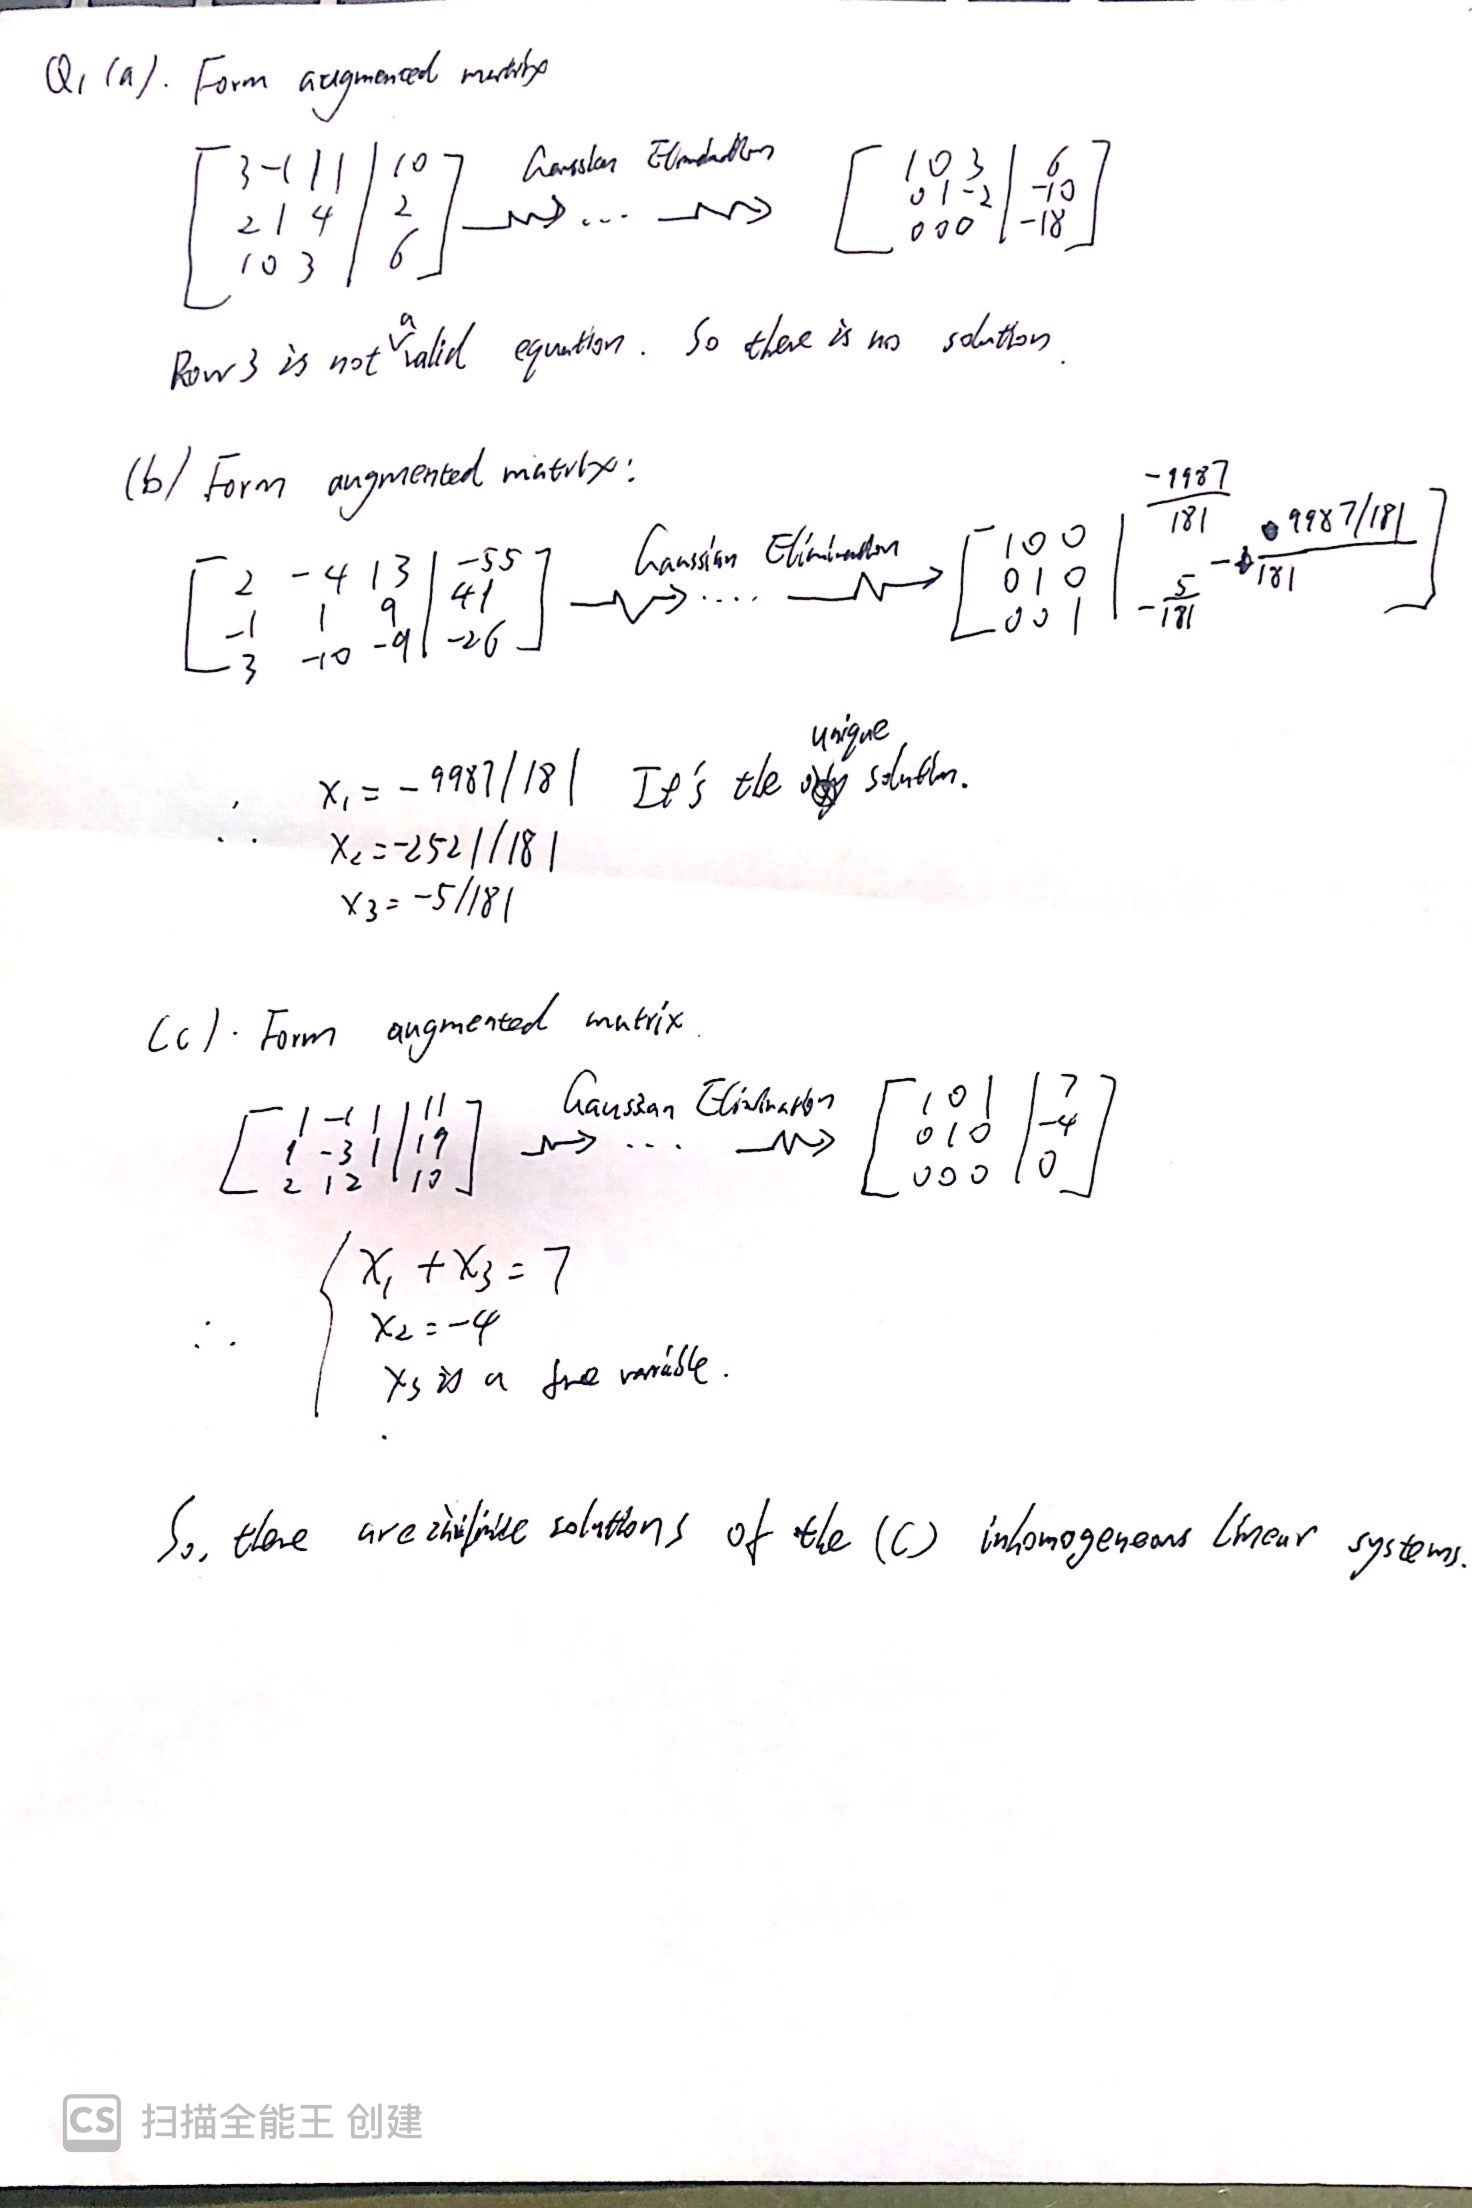 Q1 (a). Form augmented matrix
[ 3 -1 11 | 10 ] Gaussian Elimination [ 1 0 3 | 6 ]
[ 2 1 4 | 2 ] ... [ 0 1 -2 | -10 ]
[ 1 0 3 | 6 ] [ 0 0 0 | -18 ]
Row 3 is not a valid equation. So there is no solution.
(b) Form augmented matrix:
[ 2 -4 13 | -55 ] Gaussian Elimination [ 1 0 0 | -9987/181 ]
[ -1 1 9 | 41 ] .... [ 0 1 0 | - 9987/181 / 181 ]
[ 3 -10 -9 | -26 ] [ 0 0 1 | -5/181 ]
x1 = -9987/181 It's the unique solution.
∴ x2 = -2521/181
x3 = -5/181
(c). Form augmented matrix.
[ 1 -1 1 | 11 ] Gaussian Elimination [ 1 0 1 | 7 ]
[ 1 -3 1 | 19 ] ... [ 0 1 0 | -4 ]
[ 2 1 2 | 10 ] [ 0 0 0 | 0 ]
x1 + x3 = 7
∴ x2 = -4
x3 is a free variable.
So, there are infinite solutions of the (C) inhomogeneous linear systems.
CS 扫描全能王 创建